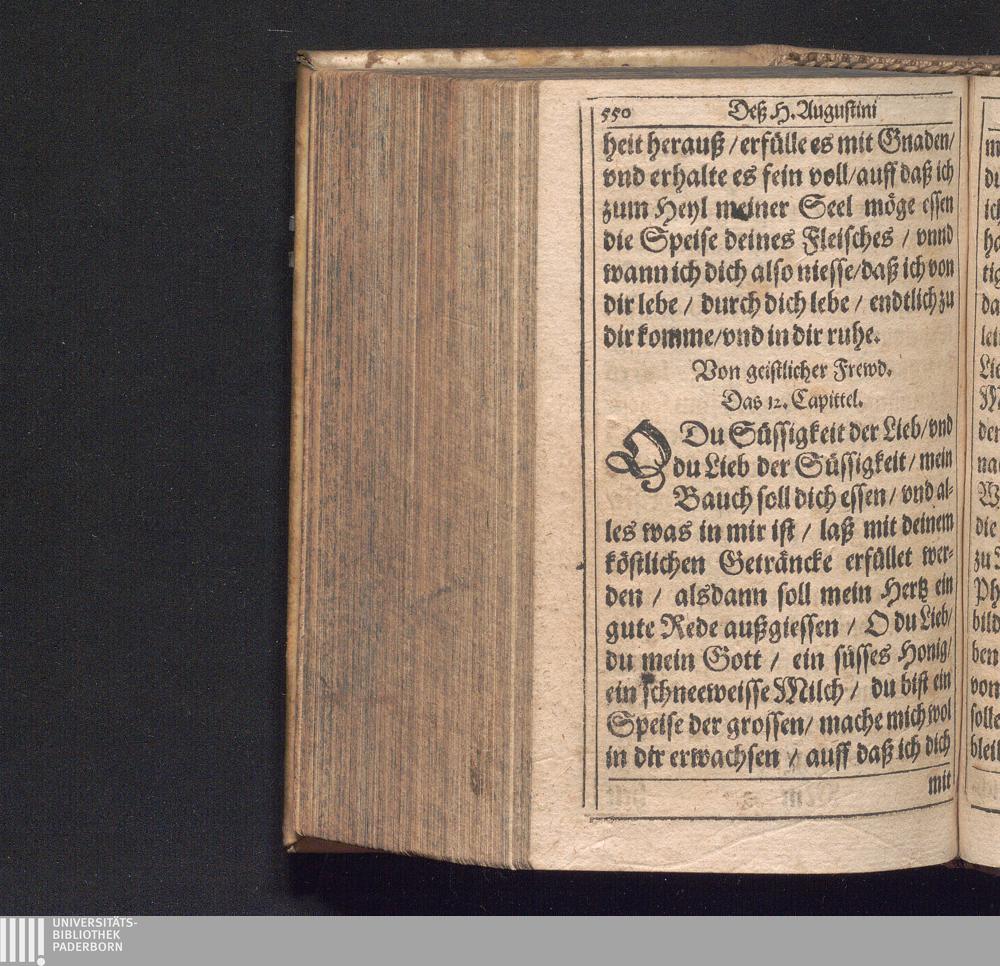 550 Deß H. Augustini
heit herauß / erfülle es mit Gnaden /
vnd erhalte es fein voll / auff daß ich
zum Heyl meiner Seel möge essen
die Speise deines Fleisches / vnnd
wann ich dich also niesse / daß ich von
dir lebe / durch dich lebe / endtlich zu
dir komme / vnd in dir ruhe.
Von geistlicher Frewd.
Das 12. Capittel.
O Du Süssigkeit der Lieb / vnd
du Lieb der Süssigkeit / mein
Bauch soll dich essen / vnd al-
les was in mir ist / laß mit deinem
köstlichen Geträncke erfüllet wer-
den / alsdann soll mein Hertz ein
gute Rede außgiessen / O du Lieb /
du mein Gott / ein süsses Honig /
ein schneeweisse Milch / du bist ein
Speise der grossen / mache mich wol
in dir erwachsen / auff daß ich dich
mit
UNIVERSITÄTS-
BIBLIOTHEK
PADERBORN